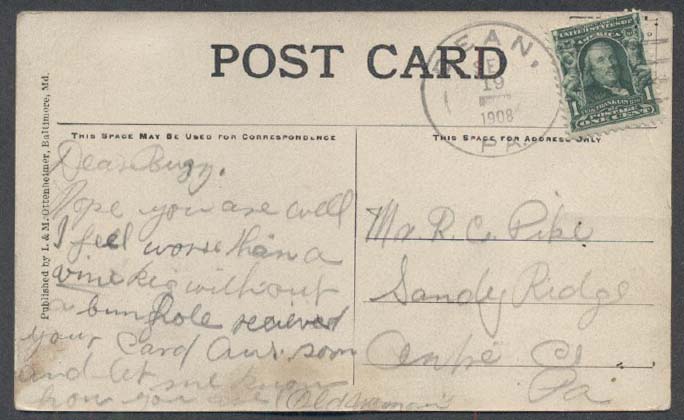 POST CARD
DEAN,
SEP
19
1908
PA.
UNITED STATES OF
AMERICA
1
POSTAGE
ONE CENT
1
THIS SPACE MAY BE USED FOR CORRESPONDENCE
THIS SPACE FOR ADDRESS ONLY
Published by I. & M. Ottenheimer, Baltimore, Md.
Dear Buzz.
Hope you are well
I feel worse than a
wine keg without
a bunghole recieved
your card Ans. soon
and let me know
how you are
Mr. R. C. Pike
Sandy Ridge
Centre Co
Pa